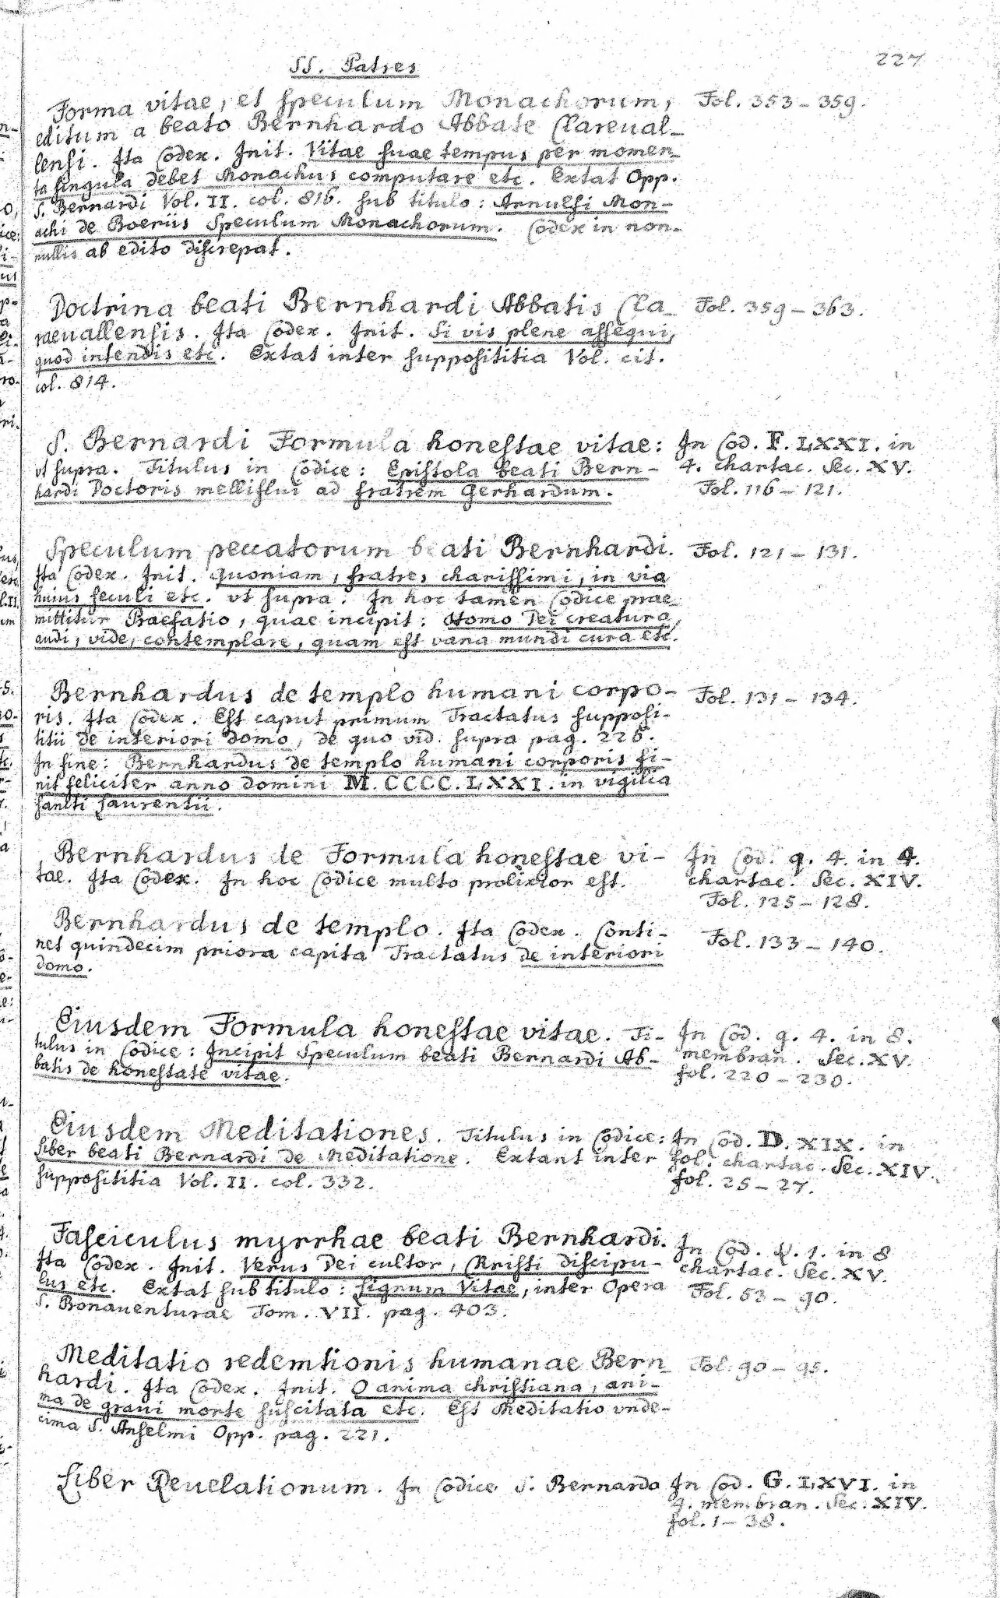 SS. Patres
227
Forma vitae, et speculum Monachorum,
editum a beato Bernhardo Abbate Clareual-
lensi. Ita Codex. Init. Vitae suae tempus per momen-
ta singula debet Monachus computare etc. Extat Opp.
S. Bernardi Vol. II. col. 816. sub titulo: Arnulfi Mon-
achi de Boeriis Speculum Monachorum. Codex in non-
nullis ab edito discrepat.
Fol. 353 - 359.
Doctrina beati Bernhardi Abbatis Cla
raeuallensis. Ita Codex. Init. Si vis plene assequi,
quod intendis etc. Extat inter supposititia Vol. cit.
col. 814.
Fol. 359 - 363.
S. Bernardi Formula honestae vitae:
vt supra. Titulus in Codice: Epistola beati Bern-
hardi Doctoris melliflui ad fratrem Gerhardum.
In Cod. F. LXXI. in
4. chartac. Sec. XV.
Fol. 116 - 121.
Speculum peccatorum beati Bernhardi.
Ita Codex. Init. Quoniam, fratres charissimi, in via
huius seculi etc. vt supra. In hoc tamen Codice prae
mittitur Praefatio, quae incipit: Homo Dei creatura,
audi, vide, contemplare, quam est vana mundi cura etc.
Fol. 121 - 131.
Bernhardus de templo humani corpo-
ris. Ita Codex. Est caput primum Tractatus supposi-
titii de interiori domo, de quo vid. supra pag. 226.
In fine: Bernhardus de templo humani corporis fi-
nit feliciter anno domini M.CCCC.LXXI. in vigilia
sancti Laurentii.
Fol. 131 - 134.
Bernhardus de Formula honestae vi-
tae. Ita Codex. In hoc Codice multo prolixior est.
In Cod. q. 4. in 4.
chartac. Sec. XIV.
Fol. 125 - 128.
Bernhardus de templo. Ita Codex. Conti-
net quindecim priora capita Tractatus de interiori
domo.
Fol. 133 - 140.
Eiusdem Formula honestae vitae. Ti-
tulus in Codice: Incipit Speculum beati Bernardi Ab-
batis de honestate vitae.
In Cod. q. 4. in 8.
membran. Sec. XV.
fol. 220 - 230.
Eiusdem Meditationes. Titulus in Codice:
Liber beati Bernardi de Meditatione. Extant inter
supposititia Vol. II. col. 332.
In Cod. D. XIX. in
fol. chartac. Sec. XIV.
fol. 25 - 27.
Fasciculus myrrhae beati Bernhardi.
Ita Codex. Init. Verus Dei cultor, Christi discipu-
lus etc. Extat sub titulo: Lignum Vitae, inter Opera
S. Bonauenturae Tom. VII. pag. 403.
In Cod. 1. in 8
chartac. Sec. XV.
Fol. 53 - 90.
Meditatio redemtionis humanae Bern
hardi. Ita Codex. Init. O anima christiana, ani-
ma de graui morte suscitata etc. Est Meditatio vnde-
cima S. Anselmi Opp. pag. 221.
Fol. 90 - 95.
Liber Reuelationum. In Codice S. Bernardo
In Cod. G. LXVI. in
4. membran. Sec. XIV.
fol. 1 - 38.